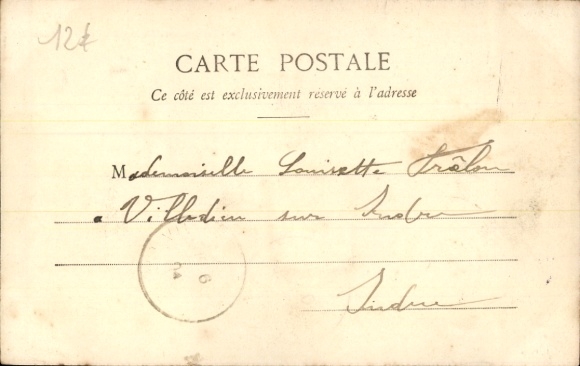 12€
CARTE POSTALE
Ce côté est exclusivement réservé à l'adresse
Mademoiselle Louisette
a Villedieu sur Indre
Indre